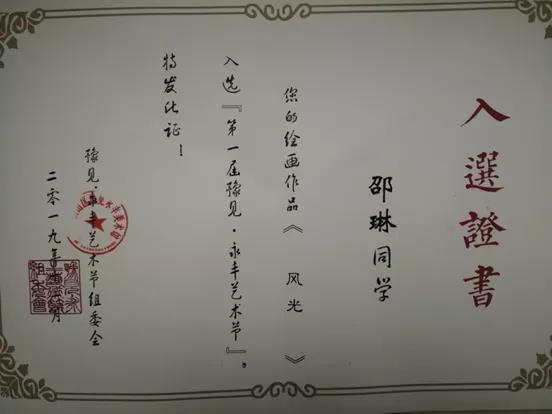 入選證書
邵琳同学
您的绘画作品《风光》
入选『第一届豫见·永丰艺术节』，
特发此证！
豫见·永丰艺术节组委会
二零一九年
月